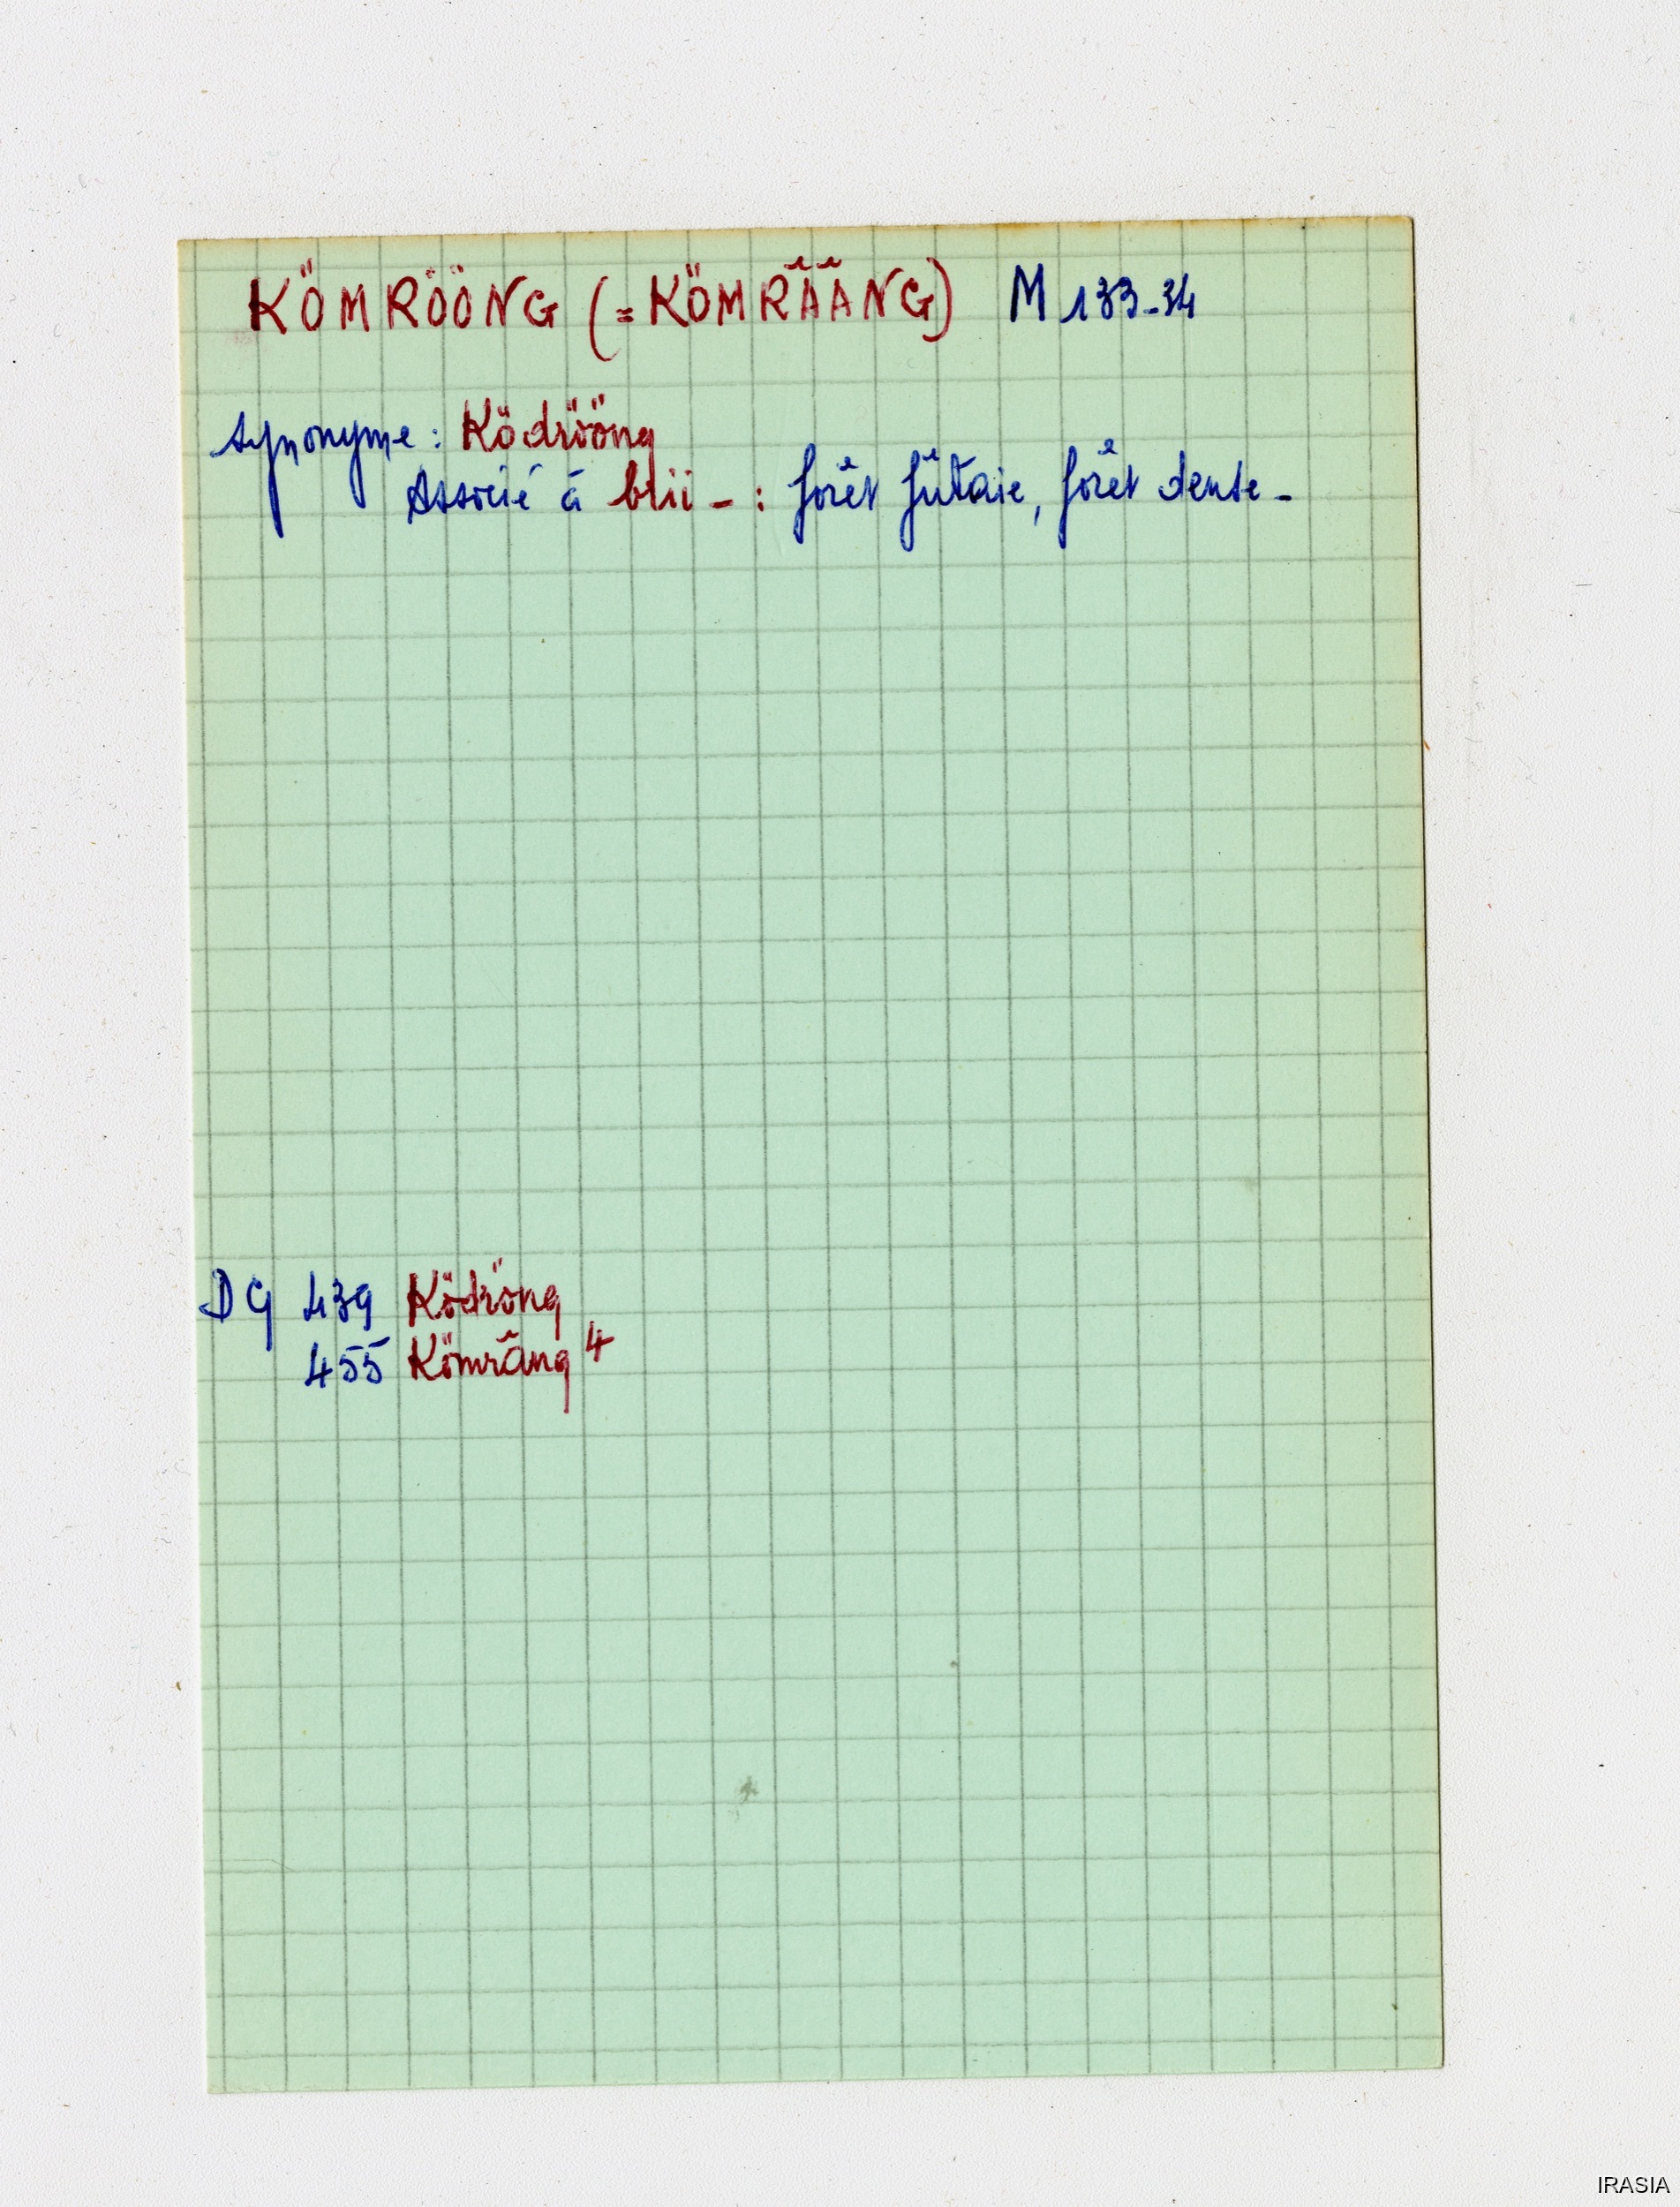 KÖMRÖÖNG (= KÖMRÂÂNG) M 133-34
synonyme : Ködrööng
Associé à blii - : forêt fûtaie, forêt dense -
DG 439 Ködröng
455 Kömrâng 4
IRASIA